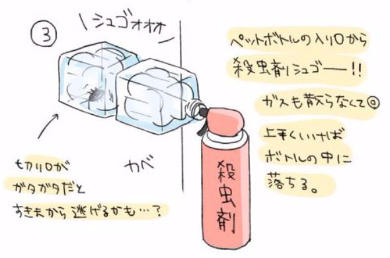 ③
シュゴォオオ
ペットボトルの入り口から
殺虫剤シュゴー!!
ガスも散らなくて◎
上手くいけば
ボトルの中に
落ちる。
切り口が
ガタガタだと
すきまから逃げるかも…?
カベ
殺虫剤